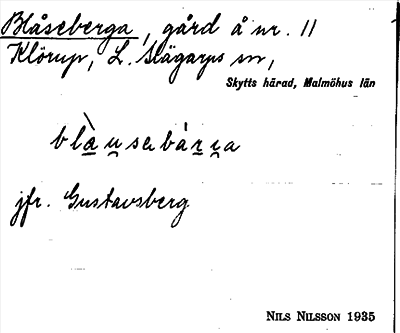 Blåseberga, gård å nr. 11
Klörup, L. Slägarps sn,
Skytts härad, Malmöhus län
jfr. Gustavsberg
NILS NILSSON 1935